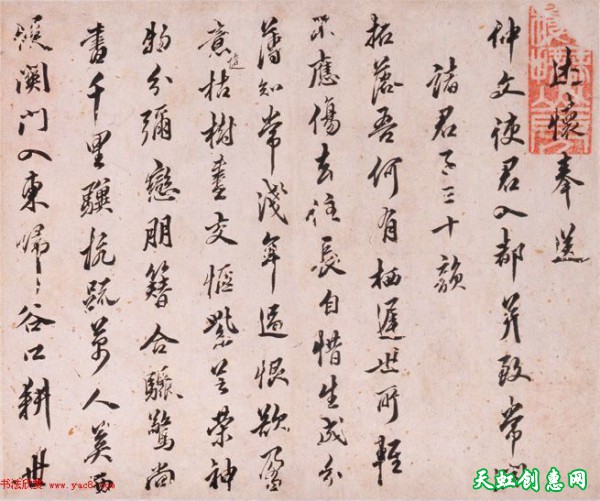 述懷奉送
仲文使君入都并致常
諸君子三十韻
拓落吾何有栖遲世所輕
不應傷去住長自惜生成分
薄知常淺年過恨欲盈
意隨枯樹盡交愜紫芝榮神
物分彌戀朋簪合驟驚尚
書千里驥抗疏萬人英
關門入東歸谷口耕
书法欣赏 www.yac8.com
天虹创惠网